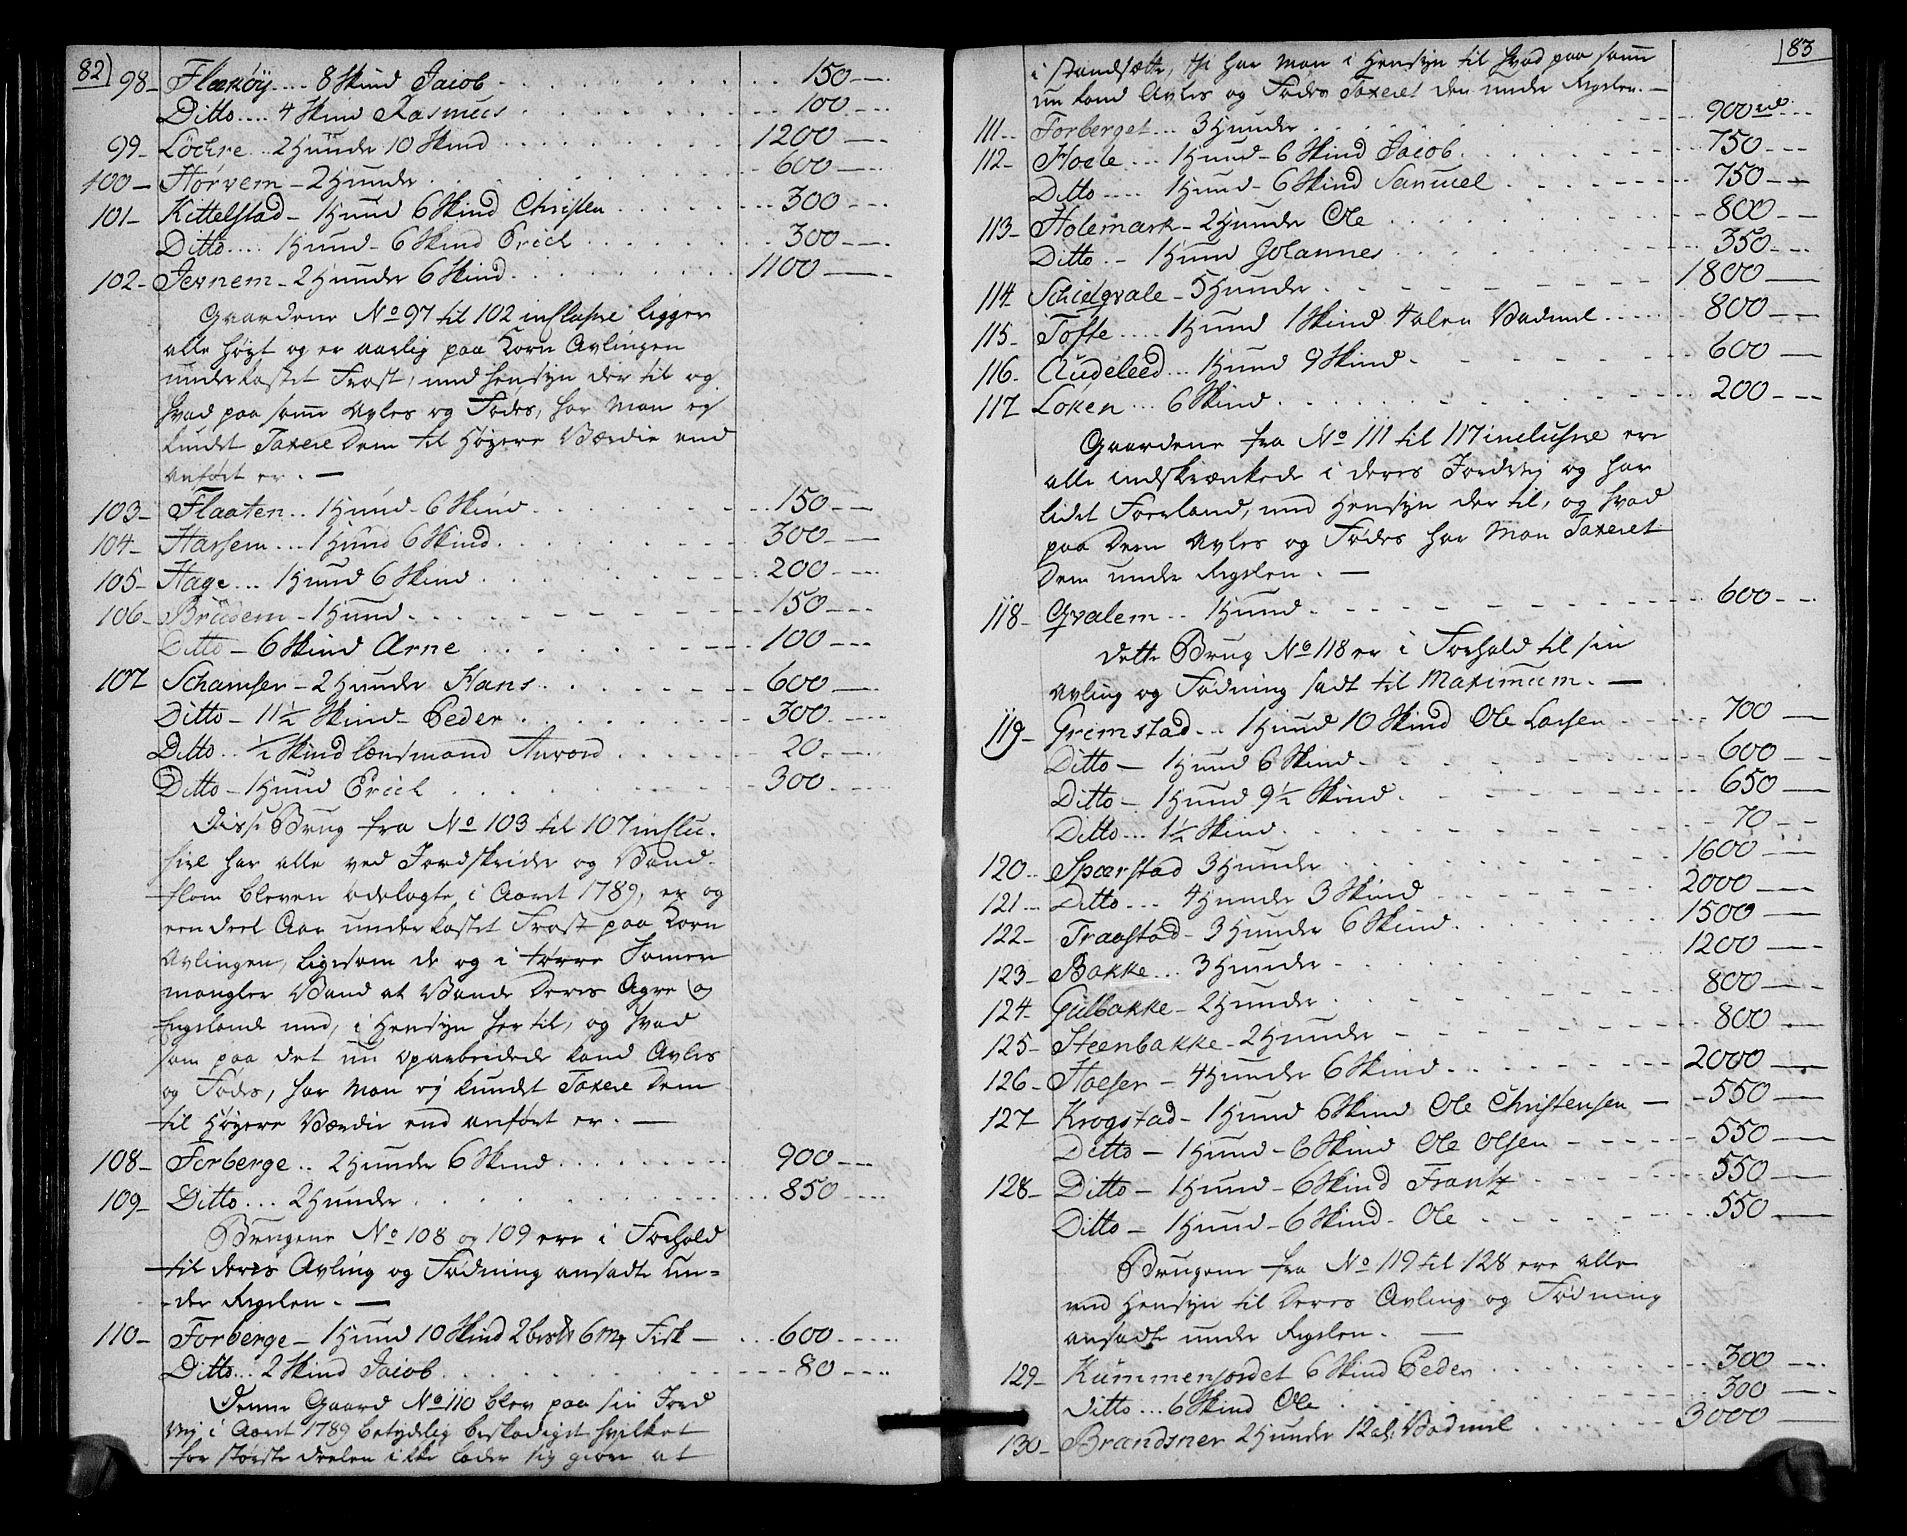 82)
98- Flækøy.... 8 Skind Jacob 150
Ditto.... 4 Skind Rasmus 100
99- Löckre... 2 Hunder 10 Skind 1200
100- Hörvem - 2 Hunder 600
101- Kittelstad - 1 Hund 6 Skind Christen 300
Ditto.... 1 Hund - 6 Skind Erich 300
102- Jernem - 2 Hunder 6 Skind 1100
Gaardene No 97 til 102 incluse ligger
alle høyt og er aarlig paa Korn Avlingen
underkastet Frost, med hensyn der til og
hvad paa samme Avles og Fødes, har Man ej
kundet Taxere dem til Høyere Værdie end
anført er. -
103- Flaaten.. 1 Hund - 6 Skind 150
104- Harsem... 1 Hund 6 Skind 300
105- Hage... 1 Hund 6 Skind 200
106- Brudem - 1 Hund 150
Ditto - 6 Skind Arne 100
107 Schamser - 2 Hunder Hans 600
Ditto - 11½ Skind - Peder 300
Ditto.. ½ Skind lænsmand Anvord 20
Ditto - 1 Hund Erich 300
Disse Brug fra No 103 til 107 inclu-
sive har alle ved Jordskrider og Vand-
flom bleven ødelagte i Aaret 1789, er og
een deel Aar underkastet Frost paa Korn
Avlingen, ligesom de og i tørre Somer
mangler Vand at Vande deres Agre og
Engelande med, i Hensyn her til, og hvad
som paa det nu oparbeidede kand Avles
og Fødes, har Man ej kundet Taxere dem
til Høyere Værdie end anført er. -
108- Forberge.. 2 Hunder 6 Skind 900
109- Ditto... 2 Hunder 850
Brugene No 108 og 109 ere i Forhold
til deres Avling og Fødning ansadte un-
der Regelen. -
110- Forberge - 1 Hund 10 Skind 2 6 Mk Fisk - 600
Ditto... 2 Skind Jacob 80
Denne Gaard No 110 blev paa sin Jord
Vej i Aaret 1789 betydelig beskadiget hvilket
for største deelen ikke lader sig giøre at
83
i standsætte, thi har Man i Hensyn til hvad paa samme
nu kand Avles og Fødes Taxeret den under Regelen. -
111.. Forberget... 3 Hunder 900 rd
112- Hoele... 1 Hund - 6 Skind Jacob 750
Ditto.... 1 Hund - 6 Skind Samuel 750
113- Holemark - 2 Hunder Ole 800
Ditto.. - 1 Hund Johannes 350
114- Schielqvale - 5 Hunder 1800
115- Tofte.... 1 Hund 1 Skind 4 alen Vadmel 800
116- Audeleed... 1 Hund 9 Skind 600
117 Loken... 6 Skind 200
Gaardene fra No 111 til 117 inclusive ere
alle indskrænkede i deres Jordvej og har
lidet Foerland, med Hensyn der til, og hvad
paa dem Avles og Fødes har Man Taxeret
dem under Regelen. -
118- Qvalem.. 1 Hund 600
dette Brug No 118 er i Forhold til sin
Avling og Fødning sadt til Maximum. -
119- Gremstad... 1 Hund 10 Skind Ole Larsen 700
Ditto - 1 Hund 6 Skind 600
Ditto - 1 Hund 9½ Skind 650
Ditto... 1½ Skind 70
120.. Spærstad 3 Hunder 1600
121- Ditto... 4 Hunder 3 Skind 2000
122- Traastad - 3 Hunder 6 Skind 1500
123- Bakke... 3 Hunder 1200
124- Gulbakke - 2 Hunder 800
125- Steenbakke - 2 Hunder 800
126- Hoelser - 4 Hunder 6 Skind 2000
127- Krogstad - 1 Hund 6 Skind Ole Christensen 550
Ditto - 1 Hund - 6 Skind Ole Olsen 550
128- Ditto - 1 Hund - 6 Skind Frantz 550
Ditto - 1 Hund - 6 Skind - Ole 550
Brugene fra No 119 til 128 ere alle
med Hensyn til deres Avling og Fødning
ansadte under Regelen. -
129- Kummensordet 6 Skind Peder 300
Ditto... 6 Skind Ole 300
130- Brandsner 2 Hunder 12 al. Vadmel 3000